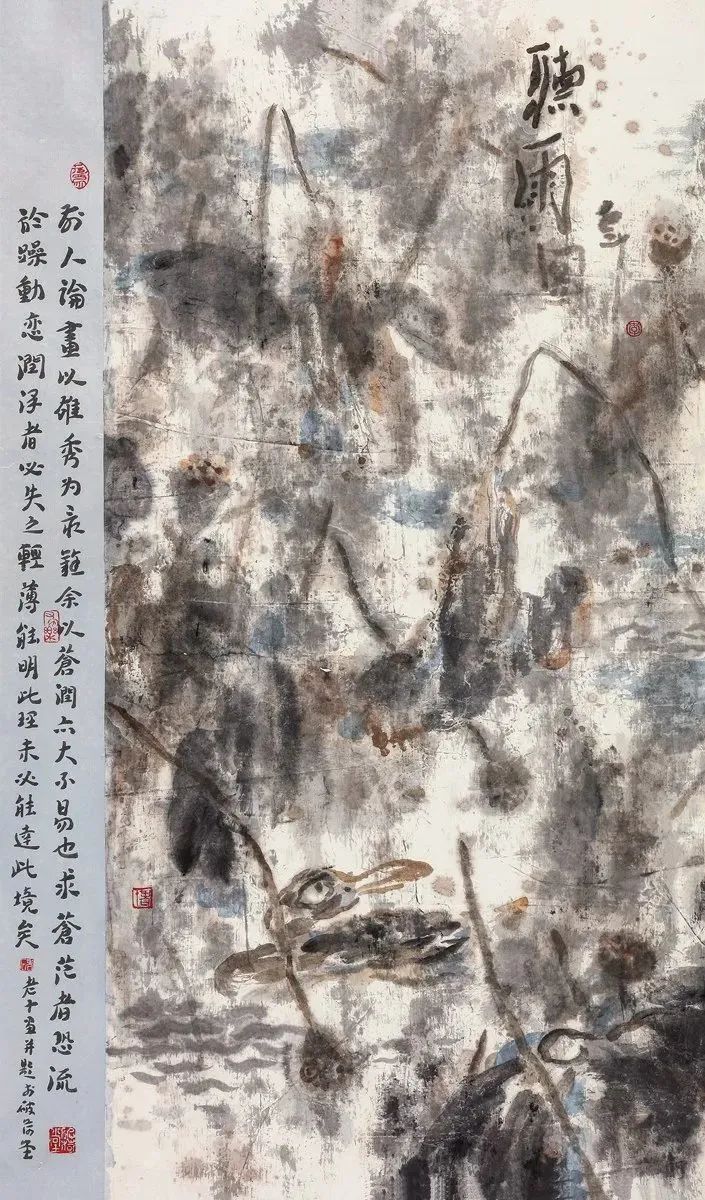 聽雨
老十
前人論畫以雄秀为最難余以蒼潤亦大不易也求蒼茫者恐流
於躁動恋潤泽者必失之輕薄能明此理未必能達此境矣
老十画并題於破荷堂